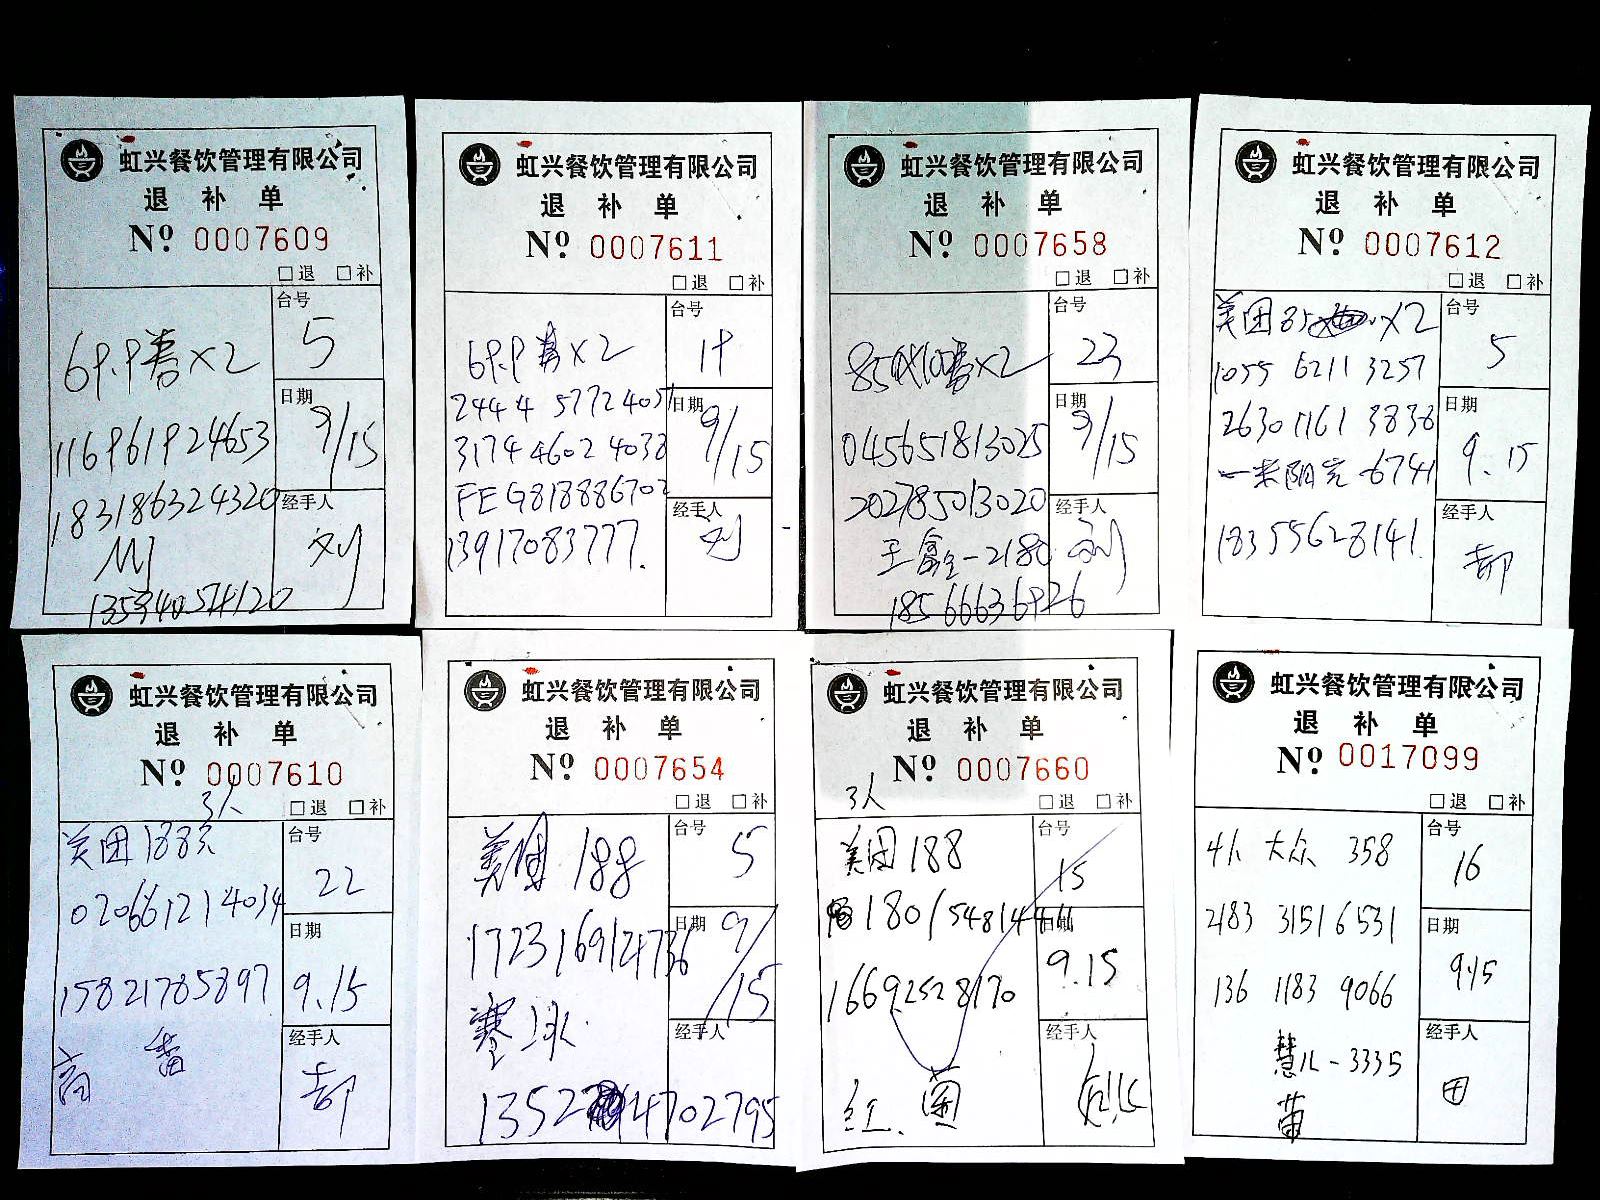 虹兴餐饮管理有限公司
退 补 单
Nº 0007609
□退 □补
台号
5
69.9 x2
日期
9/15
116961924653
183186324320
经手人
刘
虹兴餐饮管理有限公司
退 补 单
Nº 0007611
□退 □补
台号
19
69.9 x2
2444 5772 4037
日期
9/15
3174 4602 4038
FEG818886702
经手人
刘
13917083777.
虹兴餐饮管理有限公司
退 补 单
Nº 0007658
□退 □补
台号
23
x2
日期
9/15
045651813025
202785013020
经手人
刘
王鑫-2180
18566636926
虹兴餐饮管理有限公司
退 补 单
Nº 0007612
□退 □补
美团85 x2
台号
5
1055 6211 3257
2630 1161 3838
日期
9.15
一米阳光-6741
经手人
郝
18355628141.
虹兴餐饮管理有限公司
退 补 单
Nº 0007610
3人
□退 □补
美团188
台号
22
020661214034
日期
9.15
15821785897
经手人
郝
高
虹兴餐饮管理有限公司
退 补 单
Nº 0007654
□退 □补
美团 188
台号
5
172316914736
日期
9/15
经手人
虹兴餐饮管理有限公司
退 补 单
Nº 0007660
3人
□退 □补
美团 188
台号
15
日期
9.15
16692528170
经手人
红.
虹兴餐饮管理有限公司
退 补 单
Nº 0017099
□退 □补
4人 大众 358
台号
16
2183 3151 6531
日期
9.15
136 1183 9066
经手人
田
慧儿-3335
苗